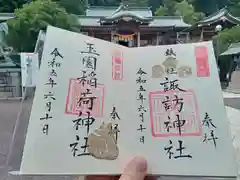 奉拝
諏訪神社
令和五年六月十日
奉拝
玉園稲荷神社
令和五年六月十日